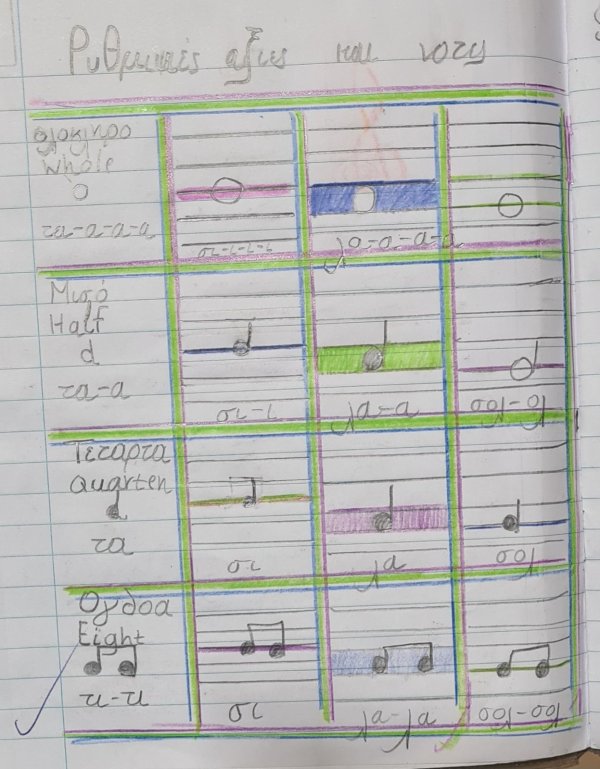 Ρυθμικές αξίες και νοτς
ολοκληρο
Whole
τα-α-α-α
σι-ι-ι-ι
φα-α-α-α
Μισό
Half
τα-α
σι-ι
φα-α
σολ-ολ
Τεταρτα
Quarten
τα
σι
φα
σολ
Ογδοα
Eight
τι-τι
σι
φα-φα
σολ-σολ